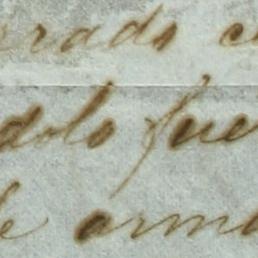 errado c
dolo fue
de arma